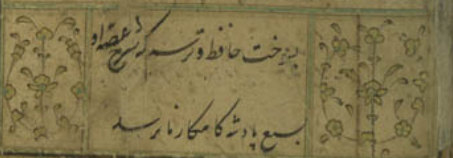 بسوخت حافظ و ترسم که شرح غصه او
بسمع پادشه کامکار ما نرسد